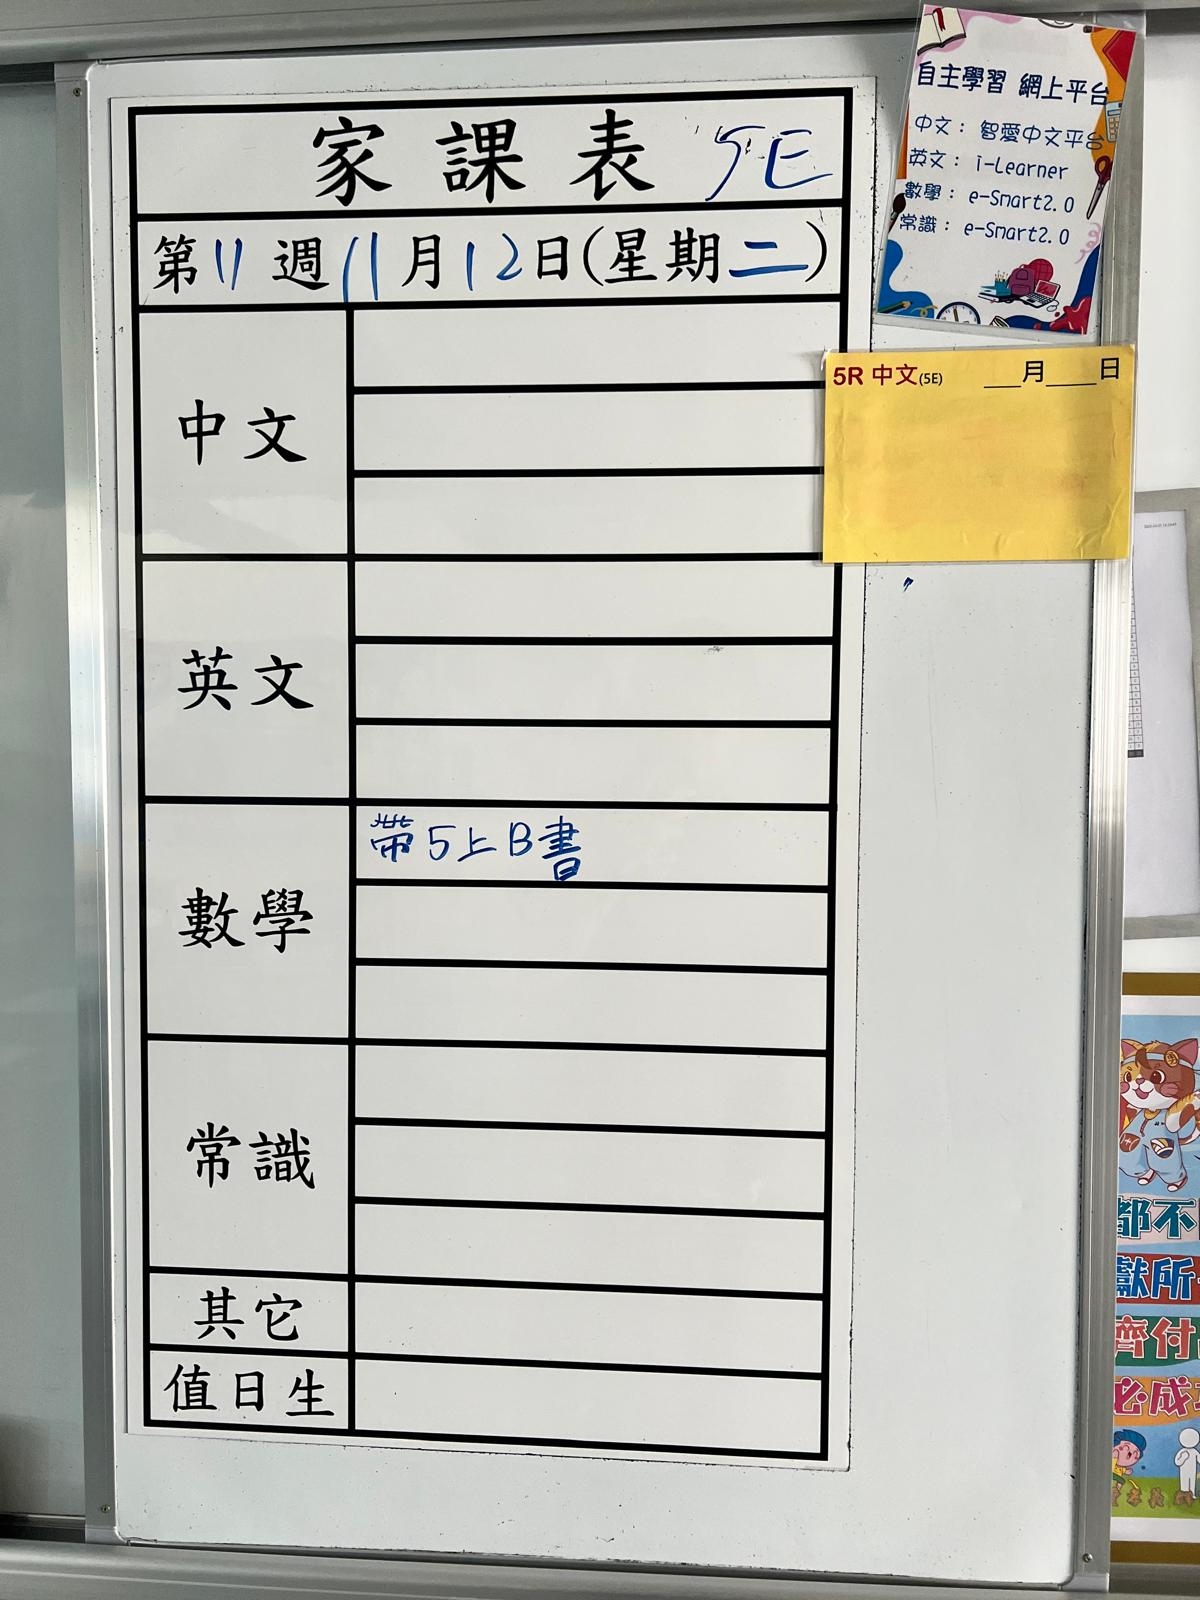 家課表 5E
第11週11月12日(星期二)
中文
英文
數學
帶5上B書
常識
其它
值日生
自主學習 網上平台
中文: 智愛中文平台
英文: i-Learner
數學: e-Smart2.0
常識: e-Smart2.0
5R 中文(5E) ___月____日
都不
獻所
齊付
必成